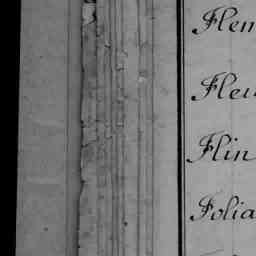 Flem
Fleu
Flin
Folia